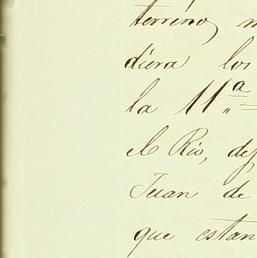 terreno, 
diera los
la 11ª
el Rio, de
Juan de
que estan